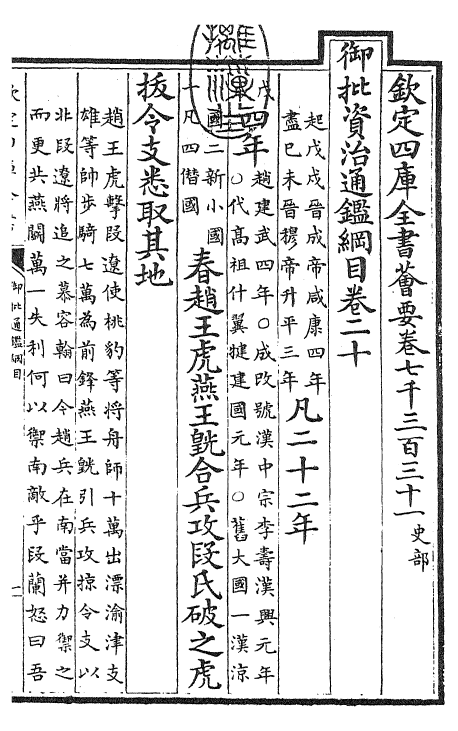 欽定四庫全書薈要卷七千三百三十一史部
御批資治通鑑綱目卷二十
起戊戌晉成帝咸康四年
盡己未晉穆帝升平三年
凡二十二年
戊戌
四年
趙建武四年○成改號漢中宗李壽漢興元年
○代高祖什翼犍建國元年○舊大國一漢涼
國二新小國
一凡四僭國
春趙王虎燕王皝合兵攻段氏破之虎
拔令支悉取其地
趙王虎擊段遼使桃豹等將舟師十萬出漂渝津支
雄等帥步騎七萬為前鋒燕王皝引兵攻掠令支以
北段遼將追之慕容翰曰今趙兵在南當并力禦之
而更共燕鬬萬一失利何以禦南敵乎段蘭怒曰吾
御批通鑑綱目
一